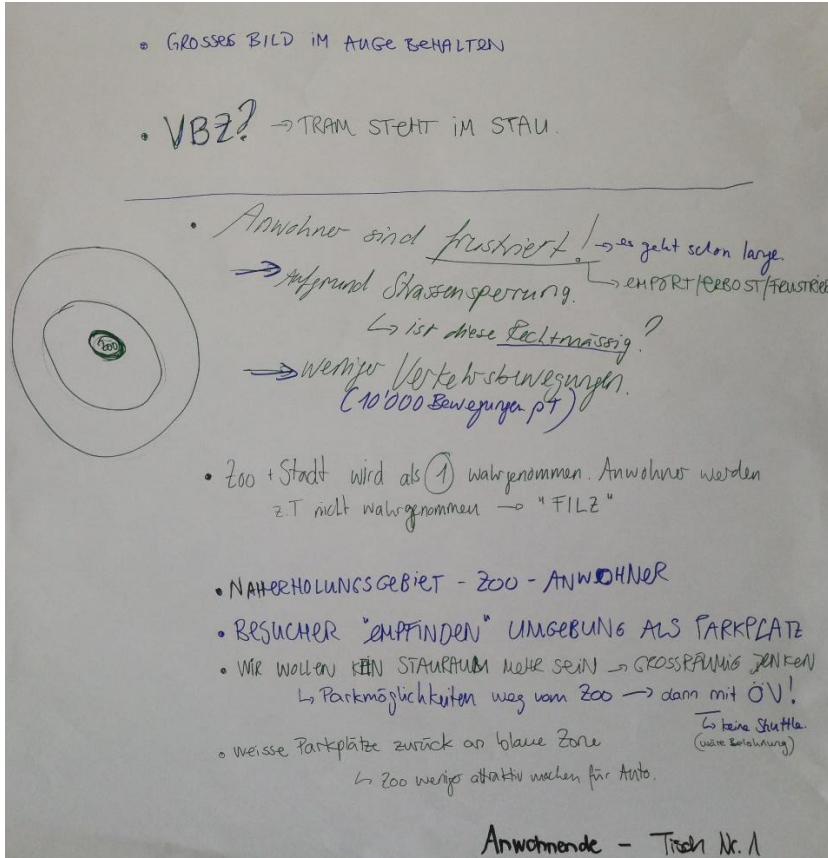 • GROSSES BILD IM AUGE BEHALTEN
• VBZ? → TRAM STEHT IM STAU.
• Anwohner sind frustriert! → es geht schon lange.
↳ EMPÖRT/ERBOST/FRUSTRIER
⇒ Aufgrund Strassensperrung.
↳ ist diese Rechtmässig?
ZOO
⇒ weniger Verkehrsbewegungen.
(10'000 Bewegungen pT)
• Zoo + Stadt wird als 1 wahrgenommen. Anwohner werden
z.T nicht wahrgenommen → "FILZ"
• NAHERHOLUNGSGEBIET - ZOO - ANWOHNER
• BESUCHER "EMPFINDEN" UMGEBUNG ALS PARKPLATZ
• WIR WOLLEN KEIN STAURAUM MEHR SEIN → GROSSRÄUMIG DENKEN
↳ Parkmöglichkeiten weg vom Zoo → dann mit ÖV!
↳ keine Shuttle.
(wäre Belohnung)
• weisse Parkplätze zurück an blaue Zone
↳ Zoo weniger attraktiv machen für Auto.
Anwohnende - Tisch Nr. 1